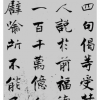 四句偈等受
人說於前福
一百千萬億
譬喻所不能